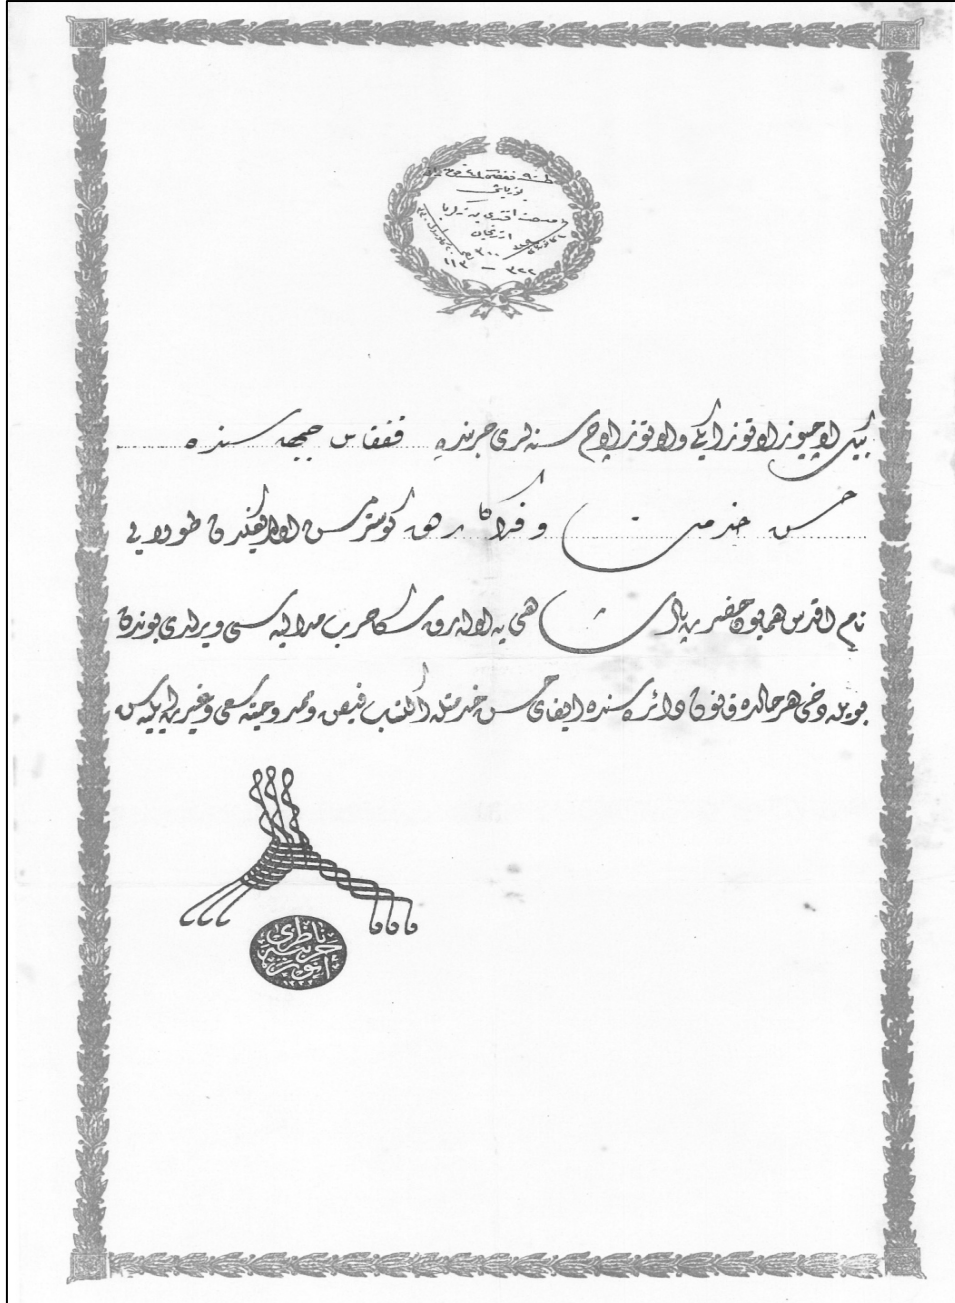 يوزباشى
افندى
ارزنجان
٣٢٢ – ١١٣
بيك اوچيوز اوتوز ايكى و اوتوز اوچ سنه لرى حربنده قفقاس جبهه سنده
حسن خدمت و فداكارلق كوسترمش اولديغكزدن طولايى
نام اقدس همايون حضرت پادشاهى يه اوله رق سكا حرب مداليه سى ويرلدى بوندن
بويله دخى هر حالده قانون دائره سنده ايفاى حسن خدمتله اكتساب فيض وممدوحيته سعى وغيرت ايليه سن
ناظرى
حربيه
انور